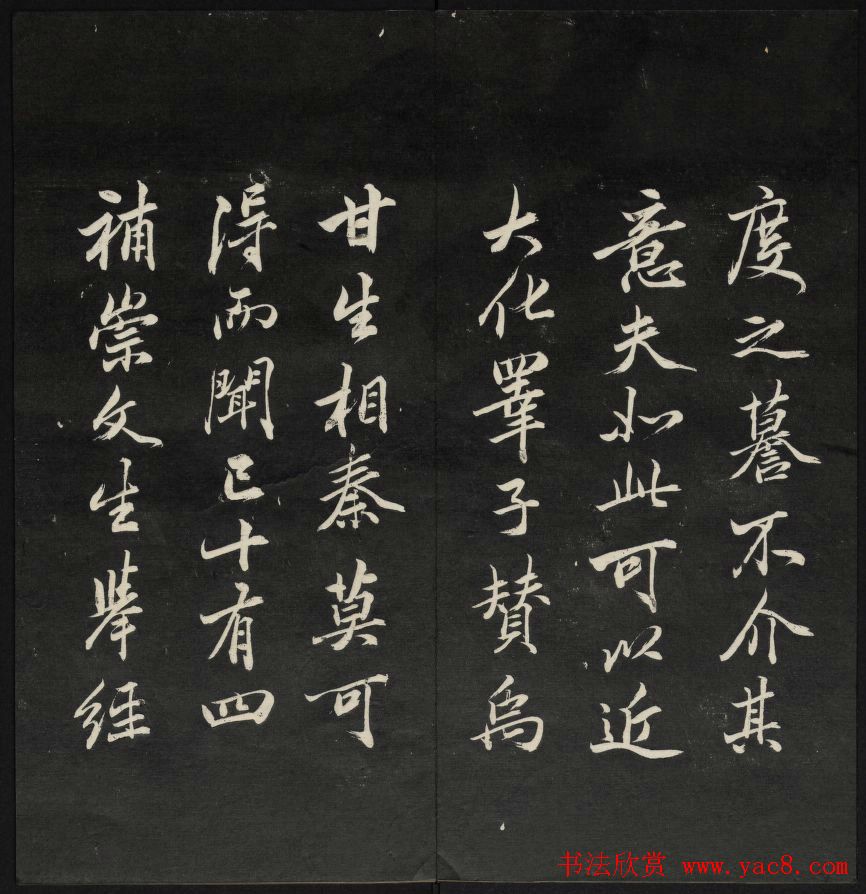 度之謩不介其
意夫如此可以近
大化睪子賛禹
甘生相秦莫可
得而聞已十有四
補崇文生舉經
书法欣赏 www.yac8.com